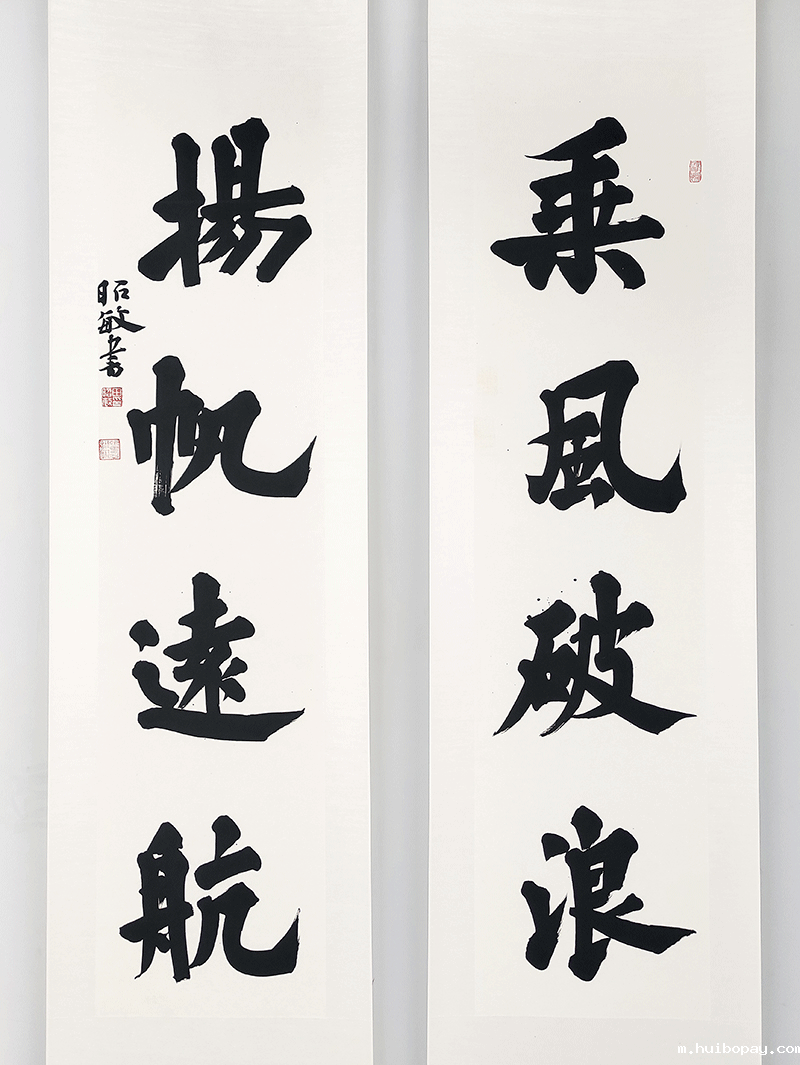 乗風破浪
揚帆遠航
昭敏書
m.huibopay.com